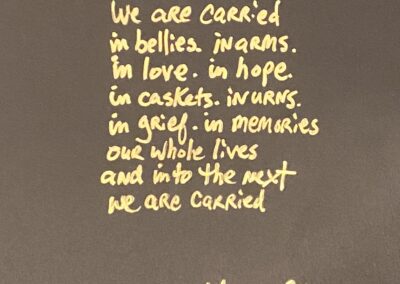 We are carried
in bellies. in arms.
in love. in hope.
in caskets. in urns.
in grief. in memories
our whole lives
and into the next
we are carried